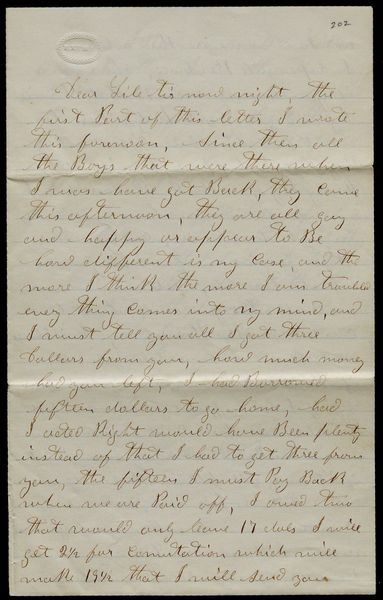 202
Dear Lile tis now night, the
first Part of this letter I wrote
this forenoon, Since then all
the Boys that were there when
I was have got Back, they came
this afternoon, they are all gay
and happy or appear to Be
how different is my case, and the
more I think the more I am troubled
every thing comes into my mind, and
I must tell you all I got three
Dollars from you, how much money
had you left, I had Borrowed
fifteen dollars to go home, had
I acted Right would have Been plenty
instead of that I had to get three from
you, the fifteen I must Pay Back
when we are Paid off, I owed two
that would only leave 17 dols I will
get 2½ for comutation which will
make 19½ that I will send you